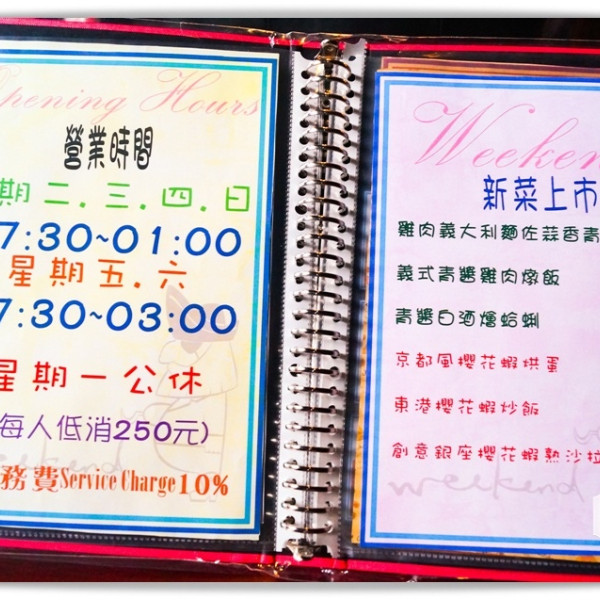 Opening Hours
營業時間
期二.三.四.日
7:30~01:00
星期五.六
7:30~03:00
星期一公休
每人低消250元)
務費Service Charge10%
weekend
Weeken
新菜上市
雞肉義大利麵佐蒜香青
義式青醬雞肉燉飯
青醬白酒燴蛤蜊
京都風櫻花蝦烘蛋
東港櫻花蝦炒飯
創意銀座櫻花蝦熱沙拉
weekend